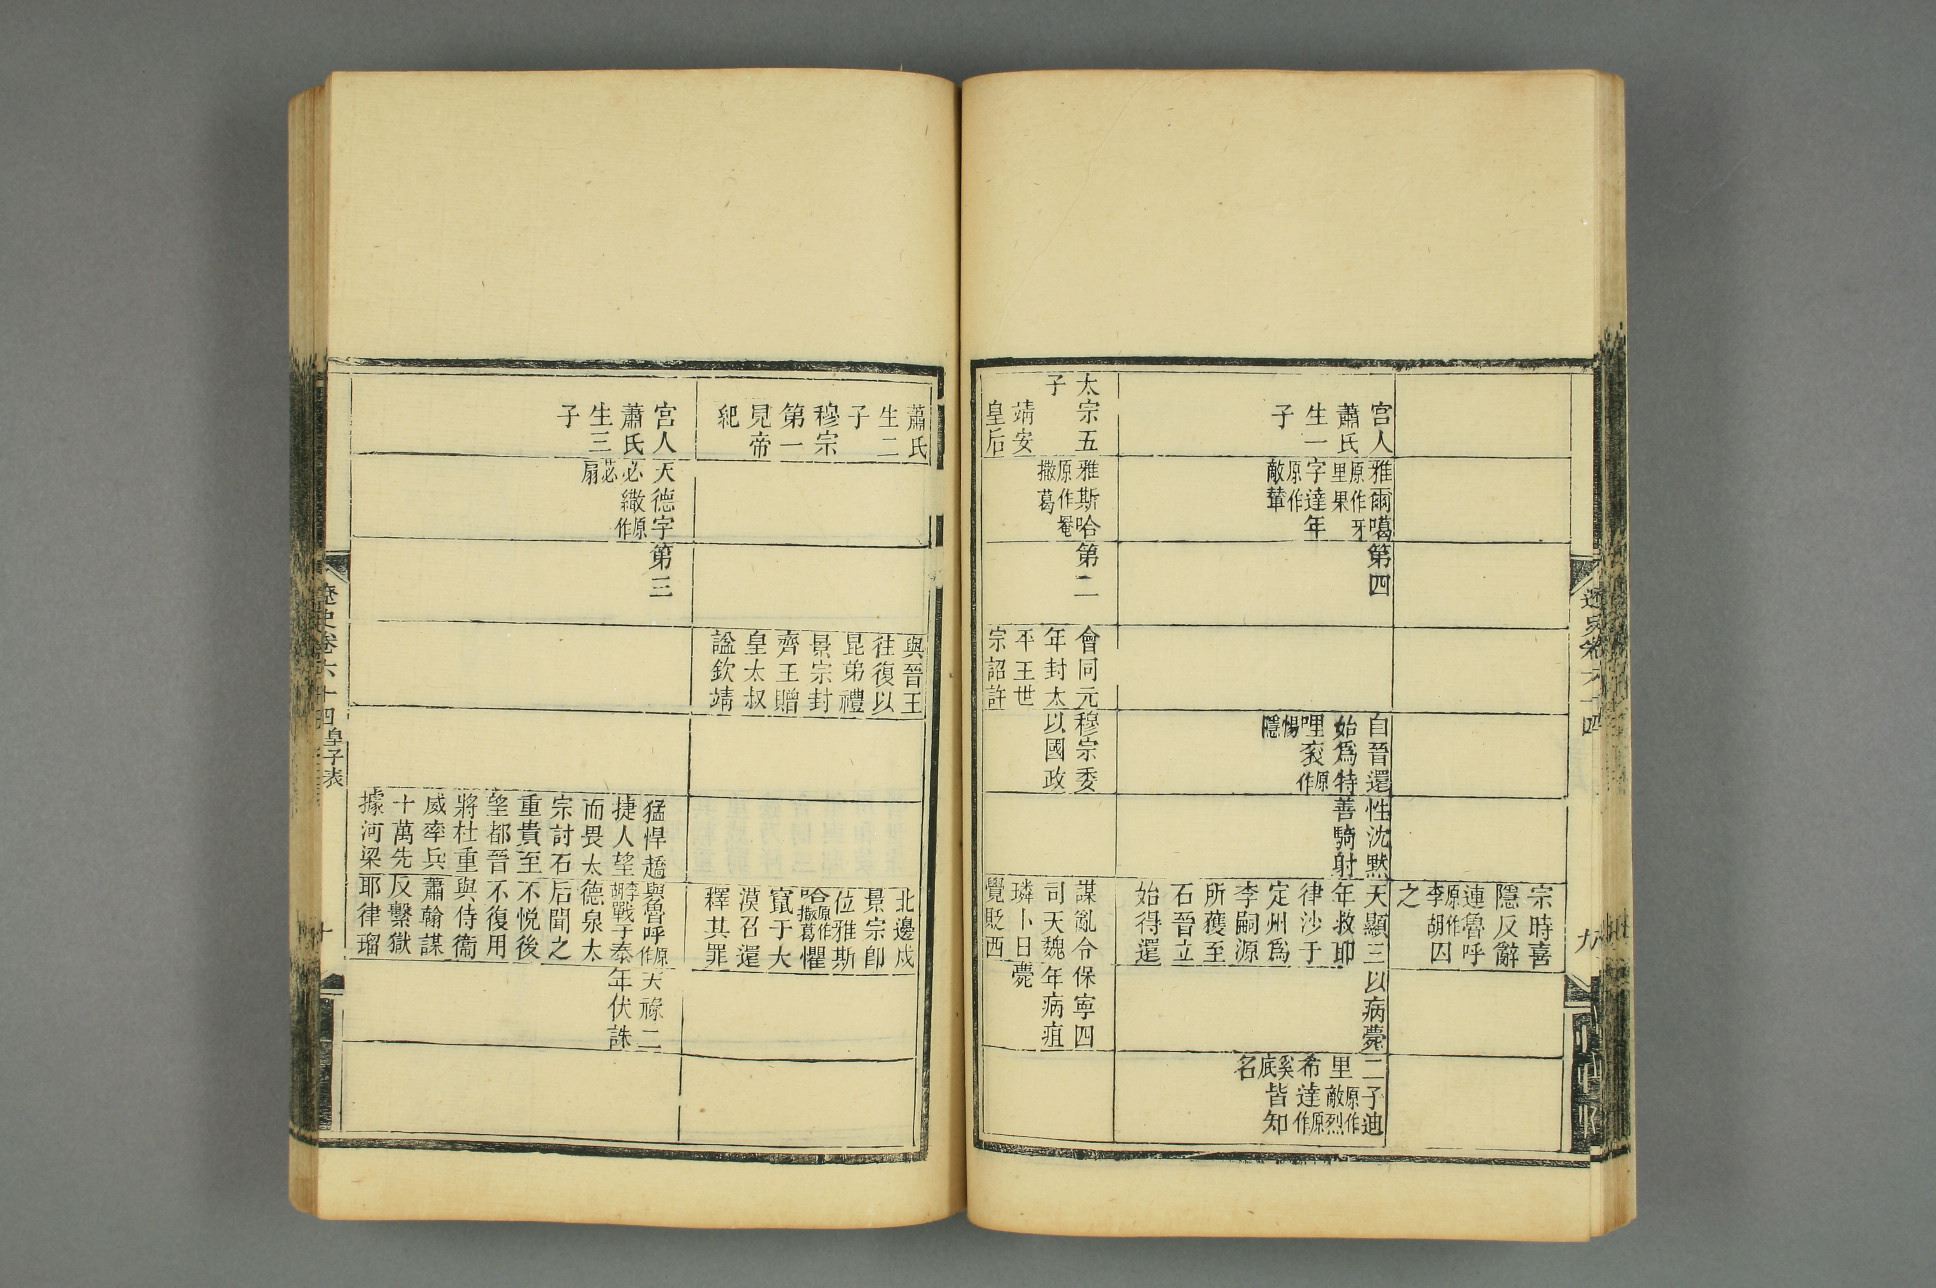 宗時喜
隱反辭
連魯呼
原作
李胡囚
之
宮人
蕭氏
生一
子
雅爾噶
原作牙
里果
字達年
原作
敵輦
第四
自晉還
始爲特
哩衮原作
惕隱
性沈黙
善騎射
天顯三
年救耶
律沙于
定州爲
李嗣源
所獲至
石晉立
始得還
以病薨
二子迪
里原作
敵烈
希達原作
奚底
皆知
名
太宗五
子
靖安
皇后
雅斯哈
原作罨
撒葛
第二
會同元
年封太
平王世
宗詔許
穆宗委
以國政
謀亂令
司天魏
璘卜日
覺貶西
保寧四
年病疽
薨
遼史卷六十四
九
蕭氏
生二
子
穆宗
第一
見帝
紀
與晉王
往復以
昆弟禮
景宗封
齊王贈
皇太叔
諡欽靖
北邊戍
景宗卽
位雅斯
哈原作
撒葛
懼
竄于大
漠召還
釋其罪
宮人
蕭氏
生三
子
天德字
必繖原作
苾扇
第三
猛悍趫
捷人望
而畏太
宗討石
重貴至
望都晉
將杜重
威率兵
十萬先
據河梁
與魯呼原作
李胡
戰于泰
德泉太
后聞之
不悅後
不復用
與侍衞
蕭翰謀
反繫獄
耶律瑠
天祿二
年伏誅
遼史卷六十四 皇子表
十